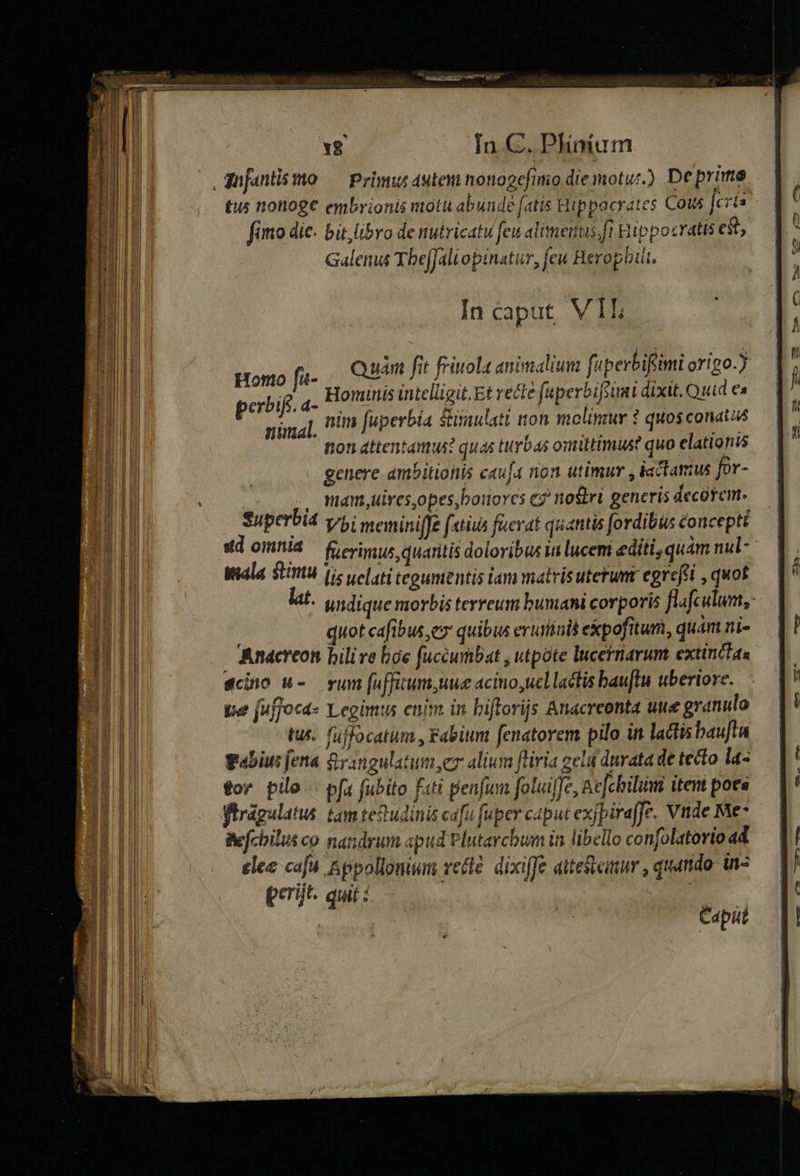 18 In C. Plinium
Infantis mo Primus autem nonogesimo die motus.) De prime
tus nonoge embrionis motu abunde satis Hippocrates Cous scris
simo die. bit, libro de nutricatu seu alimentus, si Hippocratis est,
Galenus Thessali opinatur, seu Herophili.
In caput VII.
Homo su- Quàm sit friuola animalium superbissimi origo.)
perbiss. a- Hominis intelligit. Et recte superbissimi dixit. Quid e-
nimal. nim superbia stimulati non molimur? quos conatus
non attentamus? quas turbas omittimus? quo elationis
genere ambitionis causa non utimur, iactamus for-
mam, uires, opes, honores & nostri generis decorem.
Superbia Vbi meminisse satius fuerat quantis sordibus concepti
ad omnia fuerimus, quantis doloribus in lucem editi, quàm nul-
mala stimu lis uelati tegumentis iam matris uterum egressi, quot
lat. undique morbis terreum humani corporis flasculum,
quot casibus, & quibus erumnis expositum, quàm ni-
Anacreon hili re hoc succumbat, utpote lucernarum extinctas
acino u- rum suffitum, uue acino, uel lactis haustu uberiore.
ue suffoca- Legimus enim in historijs Anacreonta uue granulo
tus. suffocatum, Fabium senatorem pilo in lactis haustu
Fabius sena strangulatum, & alium stiria gelu durata de tecto la-
tor pilo psa subito fati pensum soluisse, Aeschilum item poes
strãgulatus tam testudinis casu super caput exspirasse. Vnde Me-
Aeschilus co nandrum apud Plutarchum in libello consolatorio ad
clee casu Appollonium recte dixisse attestemur, quando in-
perijt. quit:
Caput